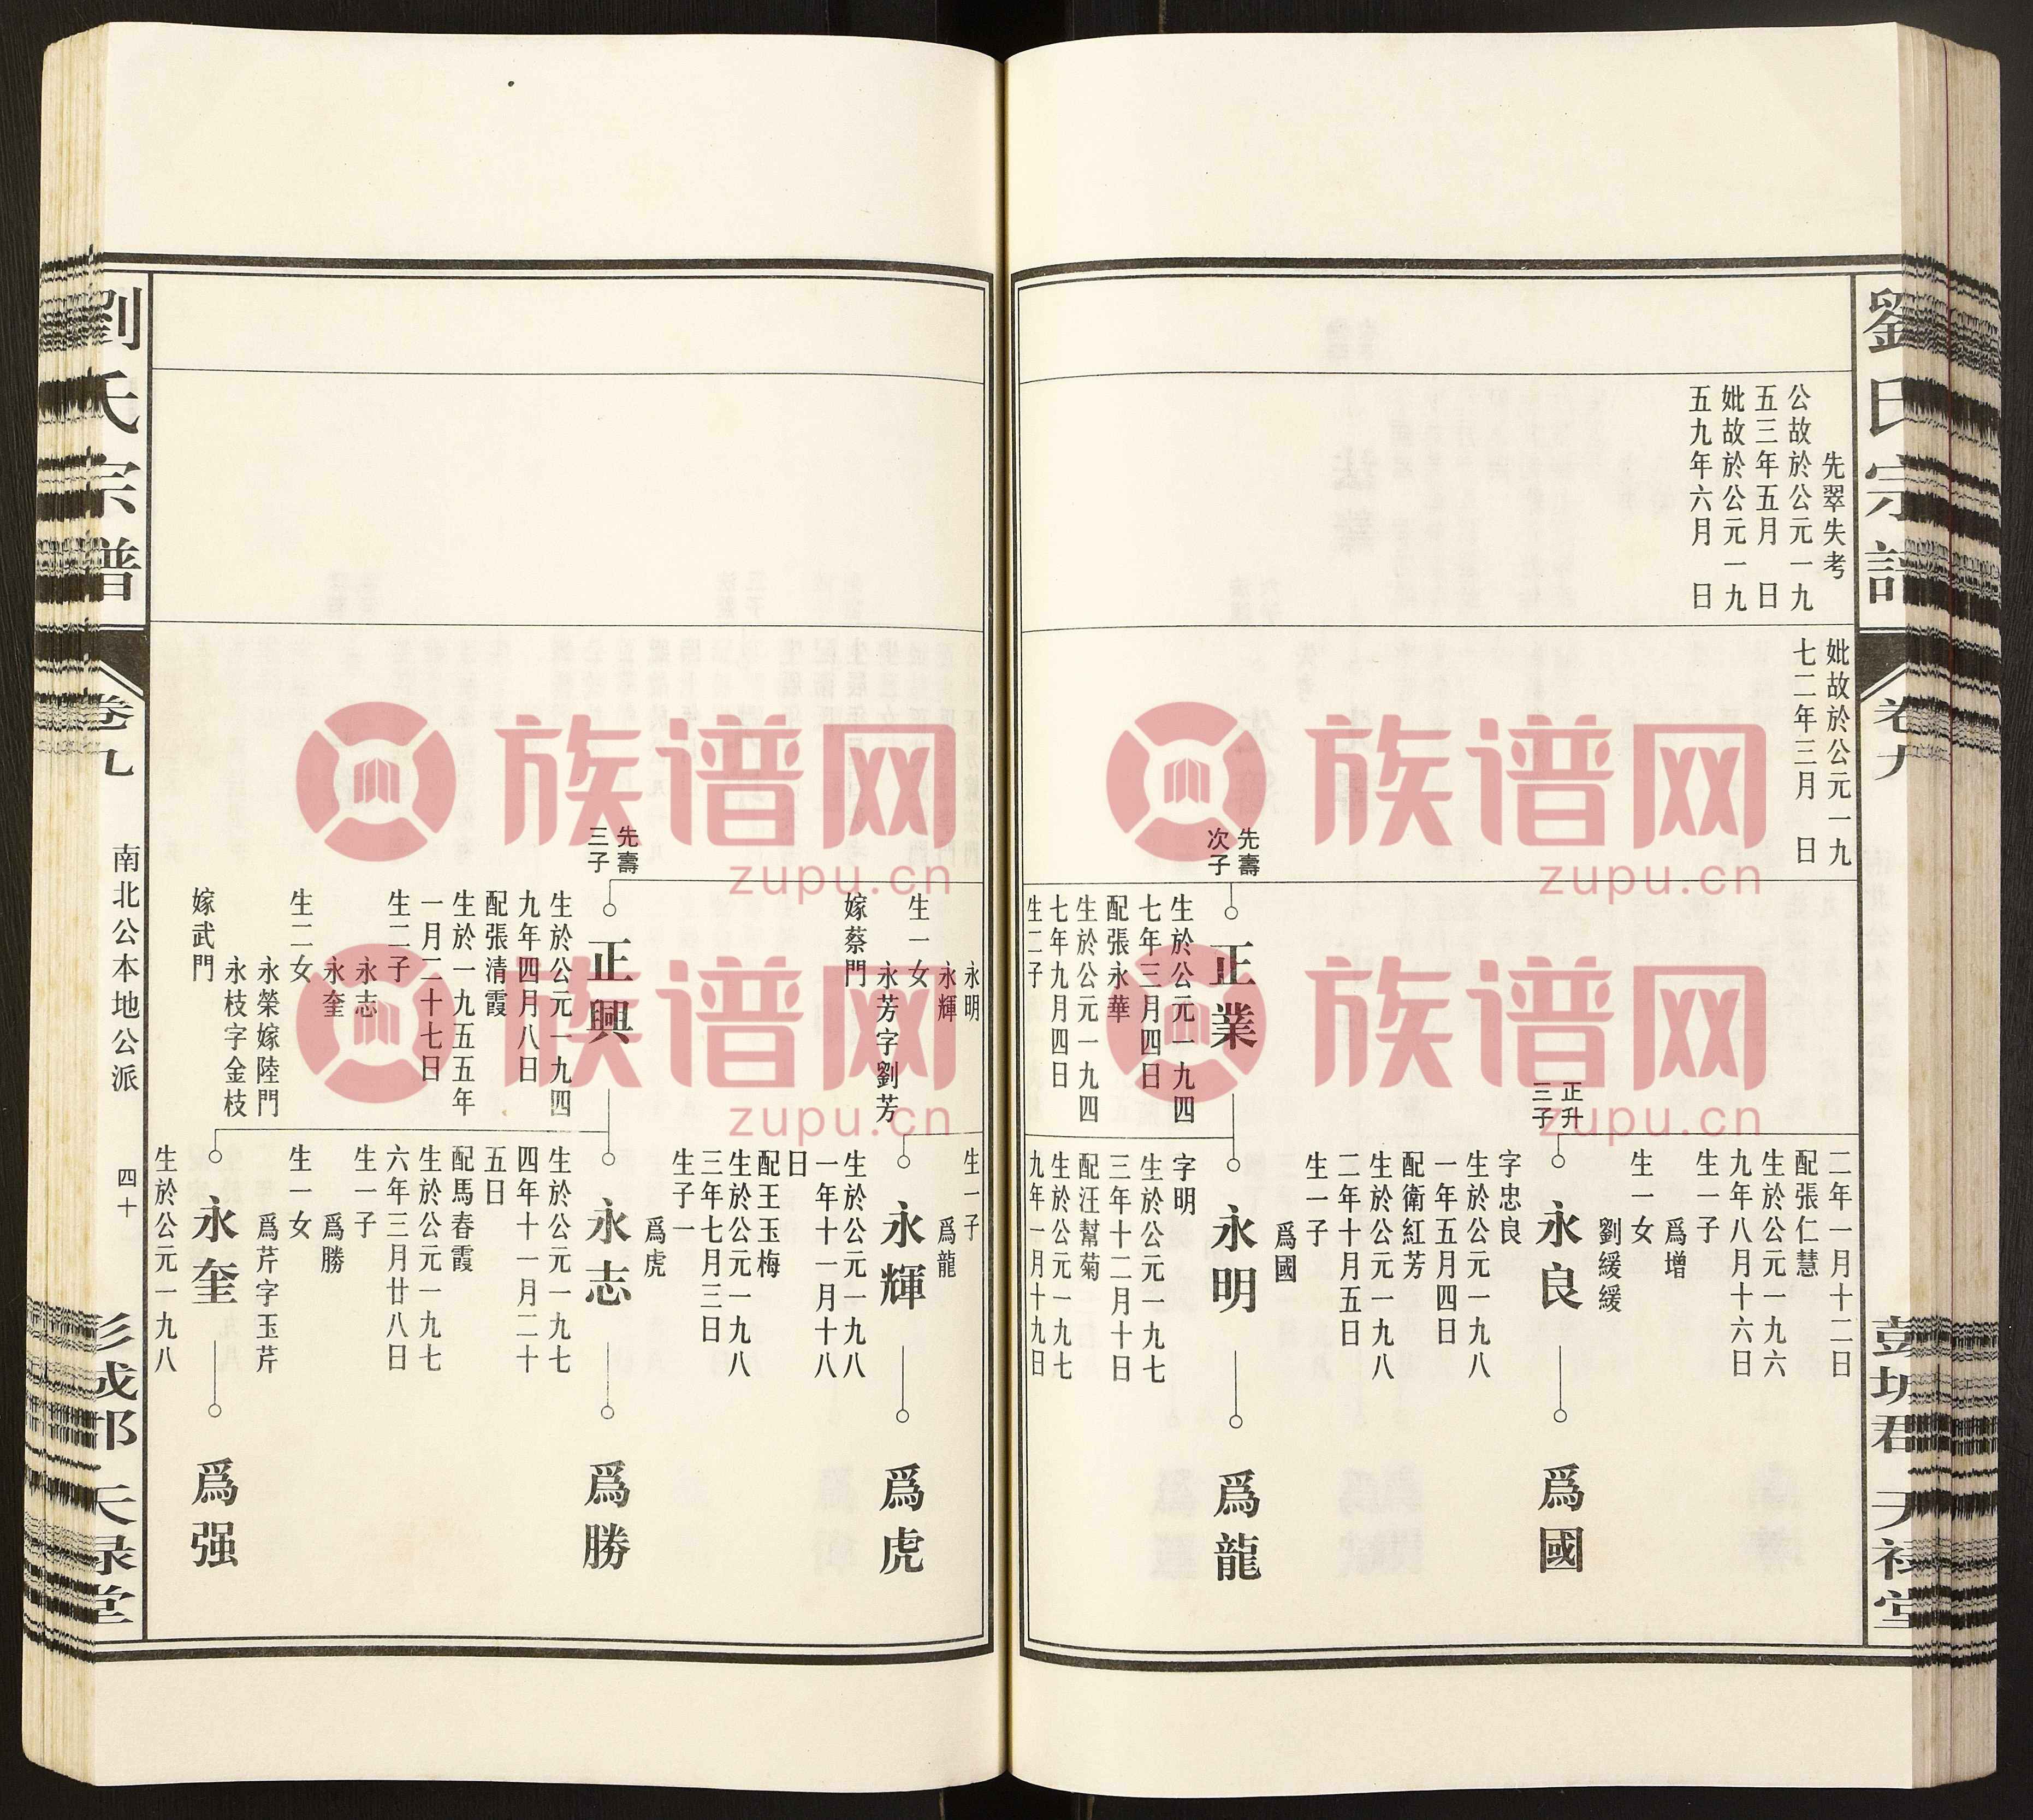 劉氏宗譜
卷九
彭城郡 天祿堂
先翠失考
公故於公元一九
五三年五月 日
妣故於公元一九
五九年六月 日
妣故於公元一九
七二年三月 日
先壽
次子
正業
生於公元一九四
七年三月四日
配張永華
生於公元一九四
七年九月四日
生二子
二年一月十二日
配張仁慧
生於公元一九六
九年八月十六日
生一子
爲增
生一女
劉緩緩
正升
三子
永良
爲國
字忠良
生於公元一九八
一年五月四日
配衛紅芳
生於公元一九八
二年十月五日
生一子
爲國
永明
爲龍
字明
生於公元一九七
三年十二月十日
配汪幫菊
生於公元一九七
九年一月十九日
永明
永輝
生一女
永芳字劉芳
嫁蔡門
先壽
三子
正興
生於公元一九四
九年四月八日
配張清霞
生於一九五五年
一月二十七日
生二子
永志
永奎
生二女
永榮嫁陸門
永枝字金枝
嫁武門
生一子
爲龍
永輝
爲虎
生於公元一九八
一年十一月十八
日
配王玉梅
生於公元一九八
三年七月三日
生子一
爲虎
永志
爲勝
生於公元一九七
四年十一月二十
五日
配馬春霞
生於公元一九七
六年三月廿八日
生一子
爲勝
生一女
爲芹字玉芹
永奎
爲强
生於公元一九八
劉氏宗譜
卷九
南北公本地公派
四十
彭城郡 天祿堂
族谱网
zupu.cn
族谱网
zupu.cn
族谱网
zupu.cn
族谱网
zupu.cn